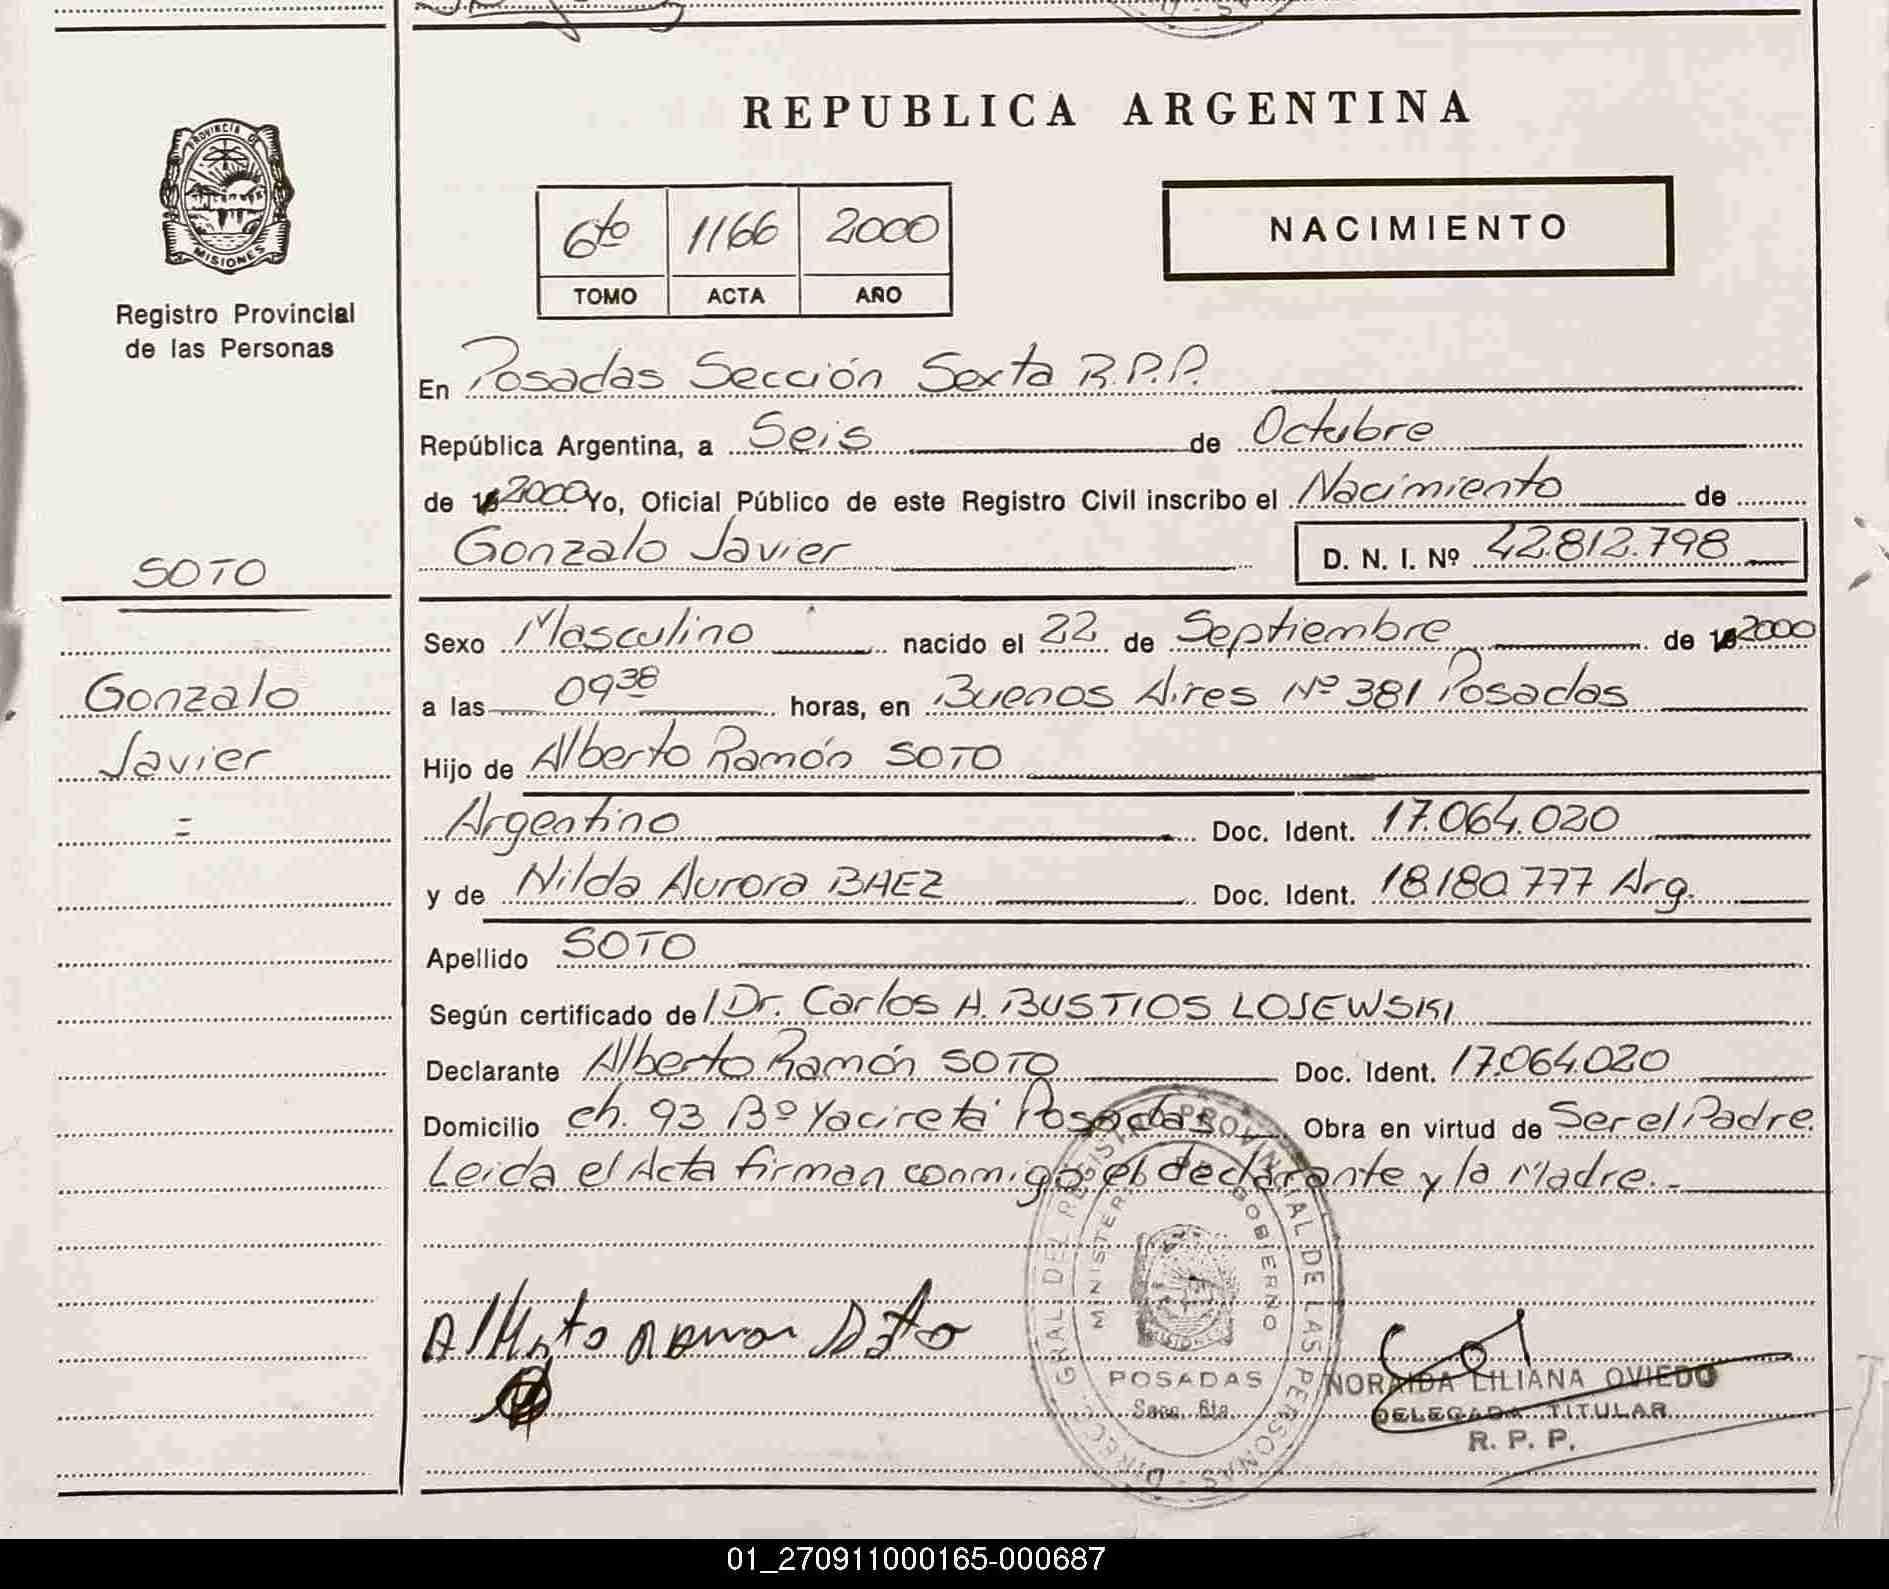 REPUBLICA ARGENTINA
PROVINCIA DE MISIONES
Registro Provincial
de las Personas
6to 1166 2000
TOMO ACTA AÑO
NACIMIENTO
En Posadas Sección Sexta R.P.P.
República Argentina, a Seis de Octubre
de 2000 Yo, Oficial Público de este Registro Civil inscribo el Nacimiento de
Gonzalo Javier D. N. I. Nº 42.812.798
SOTO
Gonzalo
Javier
=
Sexo Masculino nacido el 22 de Septiembre de 2000
a las 09 38 horas, en Buenos Aires Nº 381 Posadas
Hijo de Alberto Ramón SOTO
Argentino Doc. Ident. 17.064.020
y de Nilda Aurora BAEZ Doc. Ident. 18.180.777 Arg.
Apellido SOTO
Según certificado de / Dr. Carlos A. BUSTIOS LOSEWSKI
Declarante Alberto Ramón SOTO Doc. Ident. 17.064.020
Domicilio ch. 93 Bº Yacireta' Posadas Obra en virtud de Ser el Padre.
Leida el Acta firman conmigo el declarante y la Madre.-
DIREC. GRAL DEL REGISTRO PROVINCIAL DE LAS PERSONAS
MINISTERIO DE GOBIERNO
POSADAS
Secc. 6ta.
NORAIDA LILIANA OVIEDO
DELEGADA TITULAR
R. P. P.
01_270911000165-000687